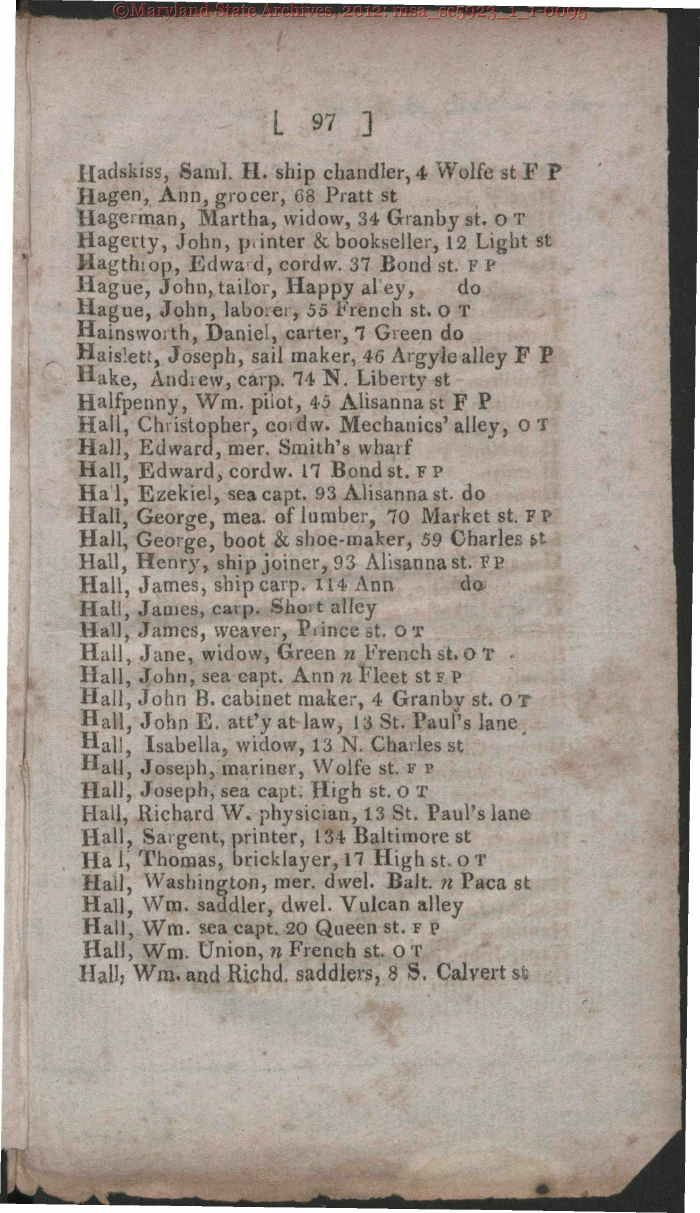 ©Maryland State Archives, 2012: msa_sc5923_1_1-0095
[ 97 ]
Hadskiss, Saml. H. ship chandler, 4 Wolfe st F P
Hagen, Ann, grocer, 68 Pratt st
Hagerman, Martha, widow, 34 Granby st. O T
Hagerty, John, printer & bookseller, 12 Light st
Hagthrop, Edward, cordw. 37 Bond st. F P
Hague, John, tailor, Happy alley, do
Hague, John, laborer, 55 French st. O T
Hainsworth, Daniel, carter, 7 Green do
Haislett, Joseph, sail maker, 46 Argyle alley F P
Hake, Andrew, carp. 74 N. Liberty st
Halfpenny, Wm. pilot, 45 Alisanna st F P
Hall, Christopher, cordw. Mechanics' alley, O T
Hall, Edward, mer. Smith's wharf
Hall, Edward, cordw. 17 Bond st. F P
Hall, Ezekiel, sea capt. 93 Alisanna st. do
Hall, George, mea. of lumber, 70 Market st. F P
Hall, George, boot & shoe-maker, 59 Charles st
Hall, Henry, ship joiner, 93 Alisanna st. F P
Hall, James, ship carp. 114 Ann do
Hall, James, carp. Short alley
Hall, James, weaver, Prince st. O T
Hall, Jane, widow, Green n French st. O T
Hall, John, sea capt. Ann n Fleet st F P
Hall, John B. cabinet maker, 4 Granby st. O T
Hall, John E. att'y at law, 13 St. Paul's lane
Hall, Isabella, widow, 13 N. Charles st
Hall, Joseph, mariner, Wolfe st. F P
Hall, Joseph, sea capt. High st. O T
Hall, Richard W. physician, 13 St. Paul's lane
Hall, Sargent, printer, 134 Baltimore st
Hall, Thomas, bricklayer, 17 High st. O T
Hall, Washington, mer. dwel. Balt. n Paca st
Hall, Wm. saddler, dwel. Vulcan alley
Hall, Wm. sea capt. 20 Queen st. F P
Hall, Wm. Union, n French st. O T
Hall, Wm. and Richd. saddlers, 8 S. Calvert st